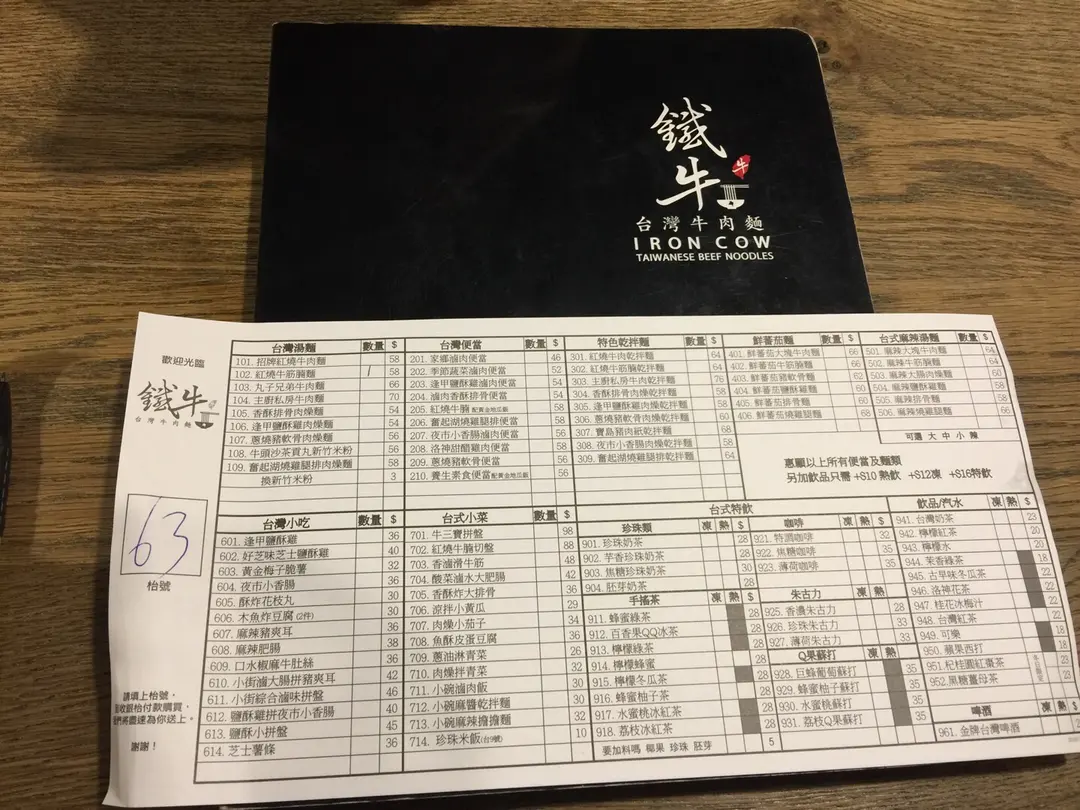 鐵牛
牛
台灣牛肉麵
IRON COW
TAIWANESE BEEF NOODLES
歡迎光臨
鐵牛
台灣牛肉麵
63
枱號
請填上枱號，
謝謝！
台灣湯麵 數量 $
101. 招牌紅燒牛肉麵 58
102. 紅燒牛筋腩麵 / 58
103. 丸子兄弟牛肉麵 66
104. 主廚私房牛肉麵 70
105. 香酥排骨肉燥麵 54
106. 逢甲鹽酥雞肉燥麵 54
107. 蔥燒豬軟骨肉燥麵 56
108. 牛頭沙茶貢丸新竹米粉 56
109. 奮起湖燒雞腿排肉燥麵 58
換新竹米粉 3
台灣便當 數量 $
201. 家鄉滷肉便當 46
202. 季節蔬菜滷肉便當 52
203. 逢甲鹽酥雞滷肉便當 54
204. 滷肉香酥排骨便當 54
205. 紅燒牛腩 配黃金地瓜飯 58
206. 奮起湖燒雞腿便當 58
207. 夜市小香腸滷肉便當 56
208. 洛神甜醋雞肉便當 56
209. 蔥燒豬軟骨便當 56
210. 養生素食便當 配黃金地瓜飯 56
特色乾拌麵 數量 $
301. 紅燒牛肉乾拌麵 64
302. 紅燒牛筋腩乾拌麵 64
303. 主廚私房牛肉乾拌麵 76
304. 香酥排骨肉燥乾拌麵 58
305. 逢甲鹽酥雞肉燥乾拌麵 58
306. 蔥燒豬軟骨肉燥乾拌麵 60
307. 寶島豬肉紙乾拌麵 58
308. 夜市小香腸肉燥乾拌麵 58
309. 奮起湖燒雞腿排乾拌麵 64
鮮蕃茄麵 數量 $
401. 鮮蕃茄大塊牛肉麵 66
402. 鮮蕃茄牛筋腩麵 66
403. 鮮蕃茄豬軟骨麵 62
404. 鮮蕃茄鹽酥雞麵 60
405. 鮮蕃茄排骨麵 60
406. 鮮蕃茄燒雞腿麵 68
台式麻辣湯麵 數量 $
501. 麻辣大塊牛肉麵 64
502. 麻辣牛筋腩麵 64
503. 麻辣大腸肉燥麵 60
504. 麻辣鹽酥雞麵 58
505. 麻辣排骨麵 58
506. 麻辣燒雞腿麵 66
可選 大 中 小 辣
惠顧以上所有便當及麵類
另加飲品只需 +$10 熱飲 +$12凍 +$16特飲
台灣小吃 數量 $
601. 逢甲鹽酥雞 36
602. 好芝味芝士鹽酥雞 40
603. 黃金梅子脆薯 32
604. 夜市小香腸 36
605. 酥炸花枝丸 30
606. 木魚炸豆腐 (2件) 30
607. 麻辣豬爽耳 36
608. 麻辣肥腸 38
609. 口水椒麻牛肚絲 36
610. 小街滷大腸拼豬爽耳 42
611. 小街綜合滷味拼盤 46
612. 鹽酥雞拼夜市小香腸 40
613. 鹽酥小拼盤 45
614. 芝士薯條 36
台式小菜 數量 $
701. 牛三寶拼盤 98
702. 紅燒牛腩切盤 88
703. 香滷滑牛筋 48
704. 酸菜滷水大肥腸 42
705. 香酥炸大排骨 36
706. 涼拌小黃瓜 29
707. 肉燥小茄子 34
708. 魚酥皮蛋豆腐 36
709. 蔥油淋青菜 32
710. 肉燥拌青菜 30
711. 小碗滷肉飯 30
712. 小碗麻醬乾拌麵 30
713. 小碗麻辣擔擔麵 32
714. 珍珠米飯 10
台式特飲
珍珠類 凍 熱 $
901. 珍珠奶茶 28
902. 芋香珍珠奶茶 28
903. 焦糖珍珠奶茶 30
904. 胚芽奶茶 28
手搖茶 凍 熱 $
911. 蜂蜜綠茶 28
912. 百香果QQ冰茶 28
913. 檸檬綠茶 28
914. 檸檬蜂蜜 28
915. 檸檬冬瓜茶 28
916. 蜂蜜柚子茶 28
917. 水蜜桃冰紅茶 28
918. 荔枝冰紅茶 28
要加料嗎 椰果 珍珠 胚芽 5
咖啡 凍 熱 $
921. 特調咖啡 32
922. 焦糖咖啡 35
923. 薄荷咖啡 35
朱古力 凍 熱 $
925. 香濃朱古力 28
926. 珍珠朱古力 33
927. 薄荷朱古力 33
Q果蘇打 凍 熱 $
928. 巨蜂葡萄蘇打 35
929. 蜂蜜柚子蘇打 35
930. 水蜜桃蘇打 35
931. 荔枝Q果蘇打 35
飲品/汽水 凍 熱 $
941. 台灣奶茶 23
942. 檸檬紅茶 20
943. 檸檬水 20
944. 茉香綠茶 18
945. 古早味冬瓜茶 22
946. 洛神花茶 22
947. 桂花冰梅汁 22
948. 台灣紅茶 18
949. 可樂
950. 蘋果西打 18
951. 杞桂圓紅棗茶 23
952. 黑糖薑母茶
啤酒 凍 熱 $
961. 金牌台灣啤酒